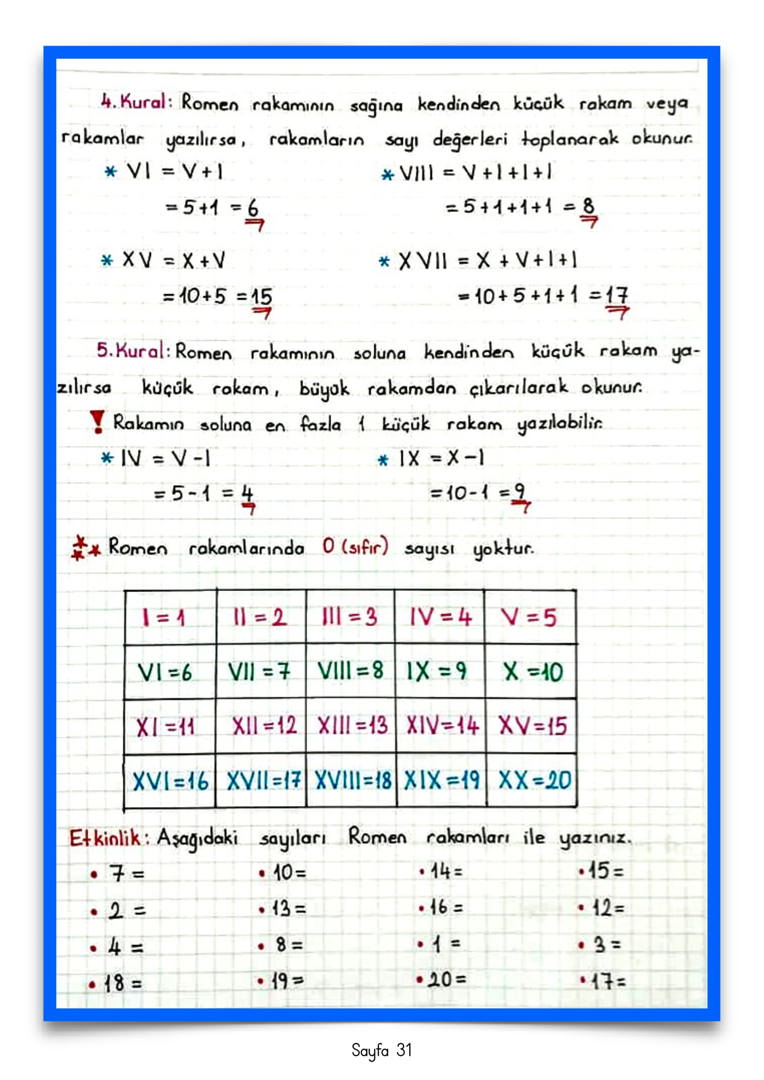 4. Kural: Romen rakamının sağına kendinden küçük rakam veya
rakamlar yazılırsa, rakamların sayı değerleri toplanarak okunur.
* VI = V+I
* VIII = V+I+I+I
= 5+1 = 6
= 5+1+1+1 = 8
* XV = X+V
* XVII = X+V+I+I
= 10+5 = 15
= 10+5+1+1 = 17
5. Kural: Romen rakamının soluna kendinden küçük rakam ya-
zılırsa küçük rakam, büyük rakamdan çıkarılarak okunur.
! Rakamın soluna en fazla 1 küçük rakam yazılabilir.
* IV = V-I
* IX = X-I
= 5-1 = 4
= 10-1 = 9
*** Romen rakamlarında 0 (sıfır) sayısı yoktur.
I = 1 II = 2 III = 3 IV = 4 V = 5
VI = 6 VII = 7 VIII = 8 IX = 9 X = 10
XI = 11 XII = 12 XIII = 13 XIV = 14 XV = 15
XVI = 16 XVII = 17 XVIII = 18 XIX = 19 XX = 20
Etkinlik: Aşağıdaki sayıları Romen rakamları ile yazınız.
• 7 = • 10 = • 14 = • 15 =
• 2 = • 13 = • 16 = • 12 =
• 4 = • 8 = • 1 = • 3 =
• 18 = • 19 = • 20 = • 17 =
Sayfa 31